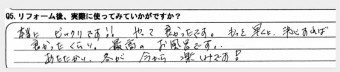 Q5. リフォーム後、実際に使ってみていかがですか?
ビックリです!! やって良かったです。もっと早くに、お願いすれば
良かったくらい。最高のお風呂です。
あたたかい、冬が今から楽しみです!